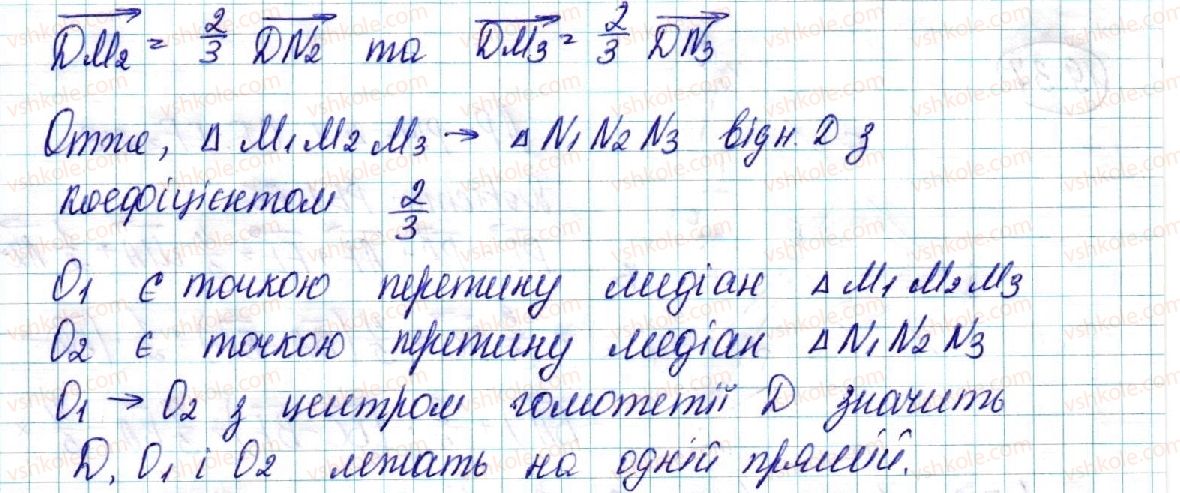 DM₂ = 2/3 DN₂ та DM₃ = 2/3 DN₃
Отже, Δ M₁M₂M₃ → Δ N₁N₂N₃ відн. D з
коефіцієнтом 2/3
O₁ є точкою перетину медіан Δ M₁M₂M₃
O₂ є точкою перетину медіан Δ N₁N₂N₃
O₁ → O₂ з центром гомотетії D значить
D, O₁ і O₂ лежать на одній прямій.